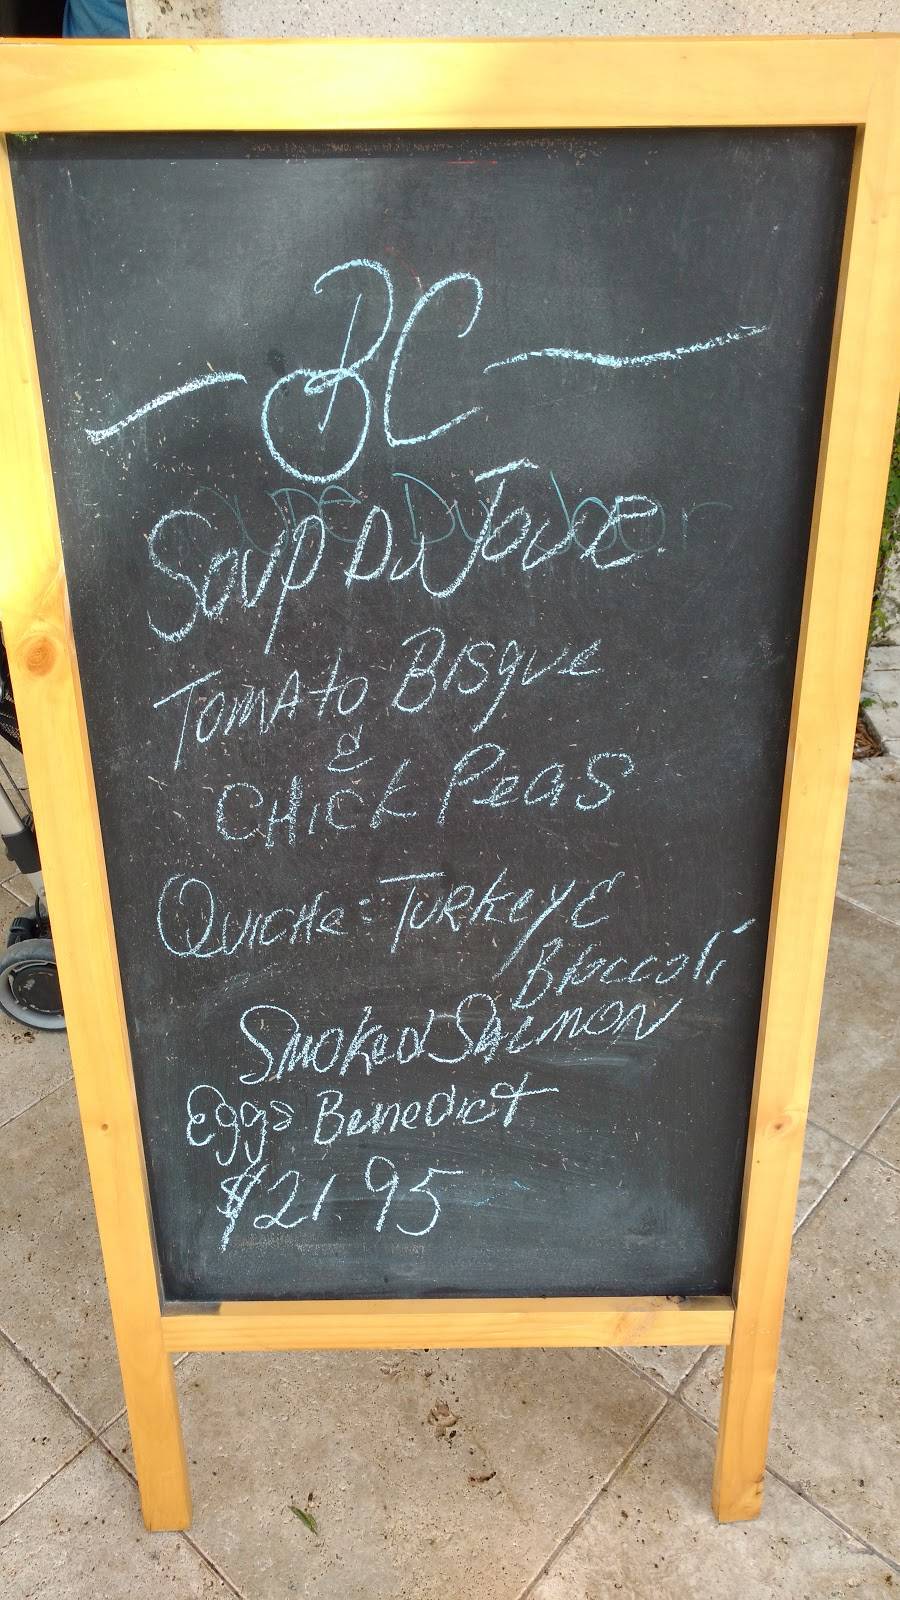 BC
Soup Du Jour
Tomato Bisque
&
CHick Peas
QuicHe: Turkey &
Broccoli
Smoked Salmon
Eggs Benedict
$21.95